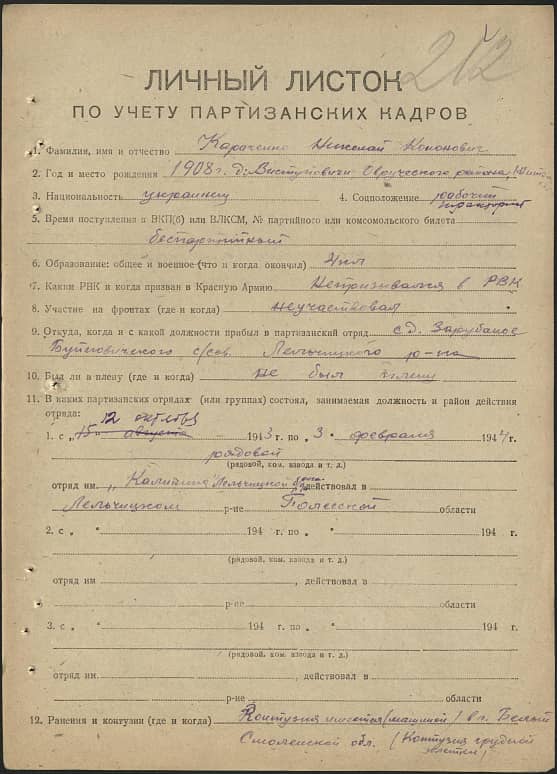 212
ЛИЧНЫЙ ЛИСТОК
ПО УЧЕТУ ПАРТИЗАНСКИХ КАДРОВ
1. Фамилия, имя и отчество Караченко Николай Кононович
2. Год и место рождения 1908 г. д. Выступовичи Овручского района,
3. Национальность украинец 4. Соцположение рабочий
5. Время поступления в ВКП(б) или ВЛКСМ, № партийного или комсомольского билета
беспартийный
6. Образование: общее и военное (что и когда окончил) 4 кл
7. Каким РВК и когда призван в Красную Армию Непризывался в РВК
8. Участие на фронтах (где и когда) неучаствовал
9. Откуда, когда и с какой должности прибыл в партизанский отряд с д. Зарубаное
с/сов. Лельчицкого р-на
10. Был ли в плену (где и когда) не был
11. В каких партизанских отрядах (или группах) состоял, занимаемая должность и район действия
отряда: 12 октября
1. с „15“ августа 1943 г. по „3“ февраля 1944 г.
рядовой
(рядовой, ком. взвода и т. д.)
отряд им „Калинина“ Лельчицкой действовал в
Лельчицком р-не Полесской области
2. с „ “ 194 г. по „ “ 194 г.
(рядовой, ком. взвода и т. д.)
отряд им , действовал в
р-не области
3. с „ “ 194 г. по „ “ 194 г.
(рядовой, ком. взвода и т. д.)
отряд им. , действовал в
р-не области
12. Ранения и контузии (где и когда) Контузия имеется (машиной) в г. Белый
Смоленской обл. (Контузия грудной клетки)